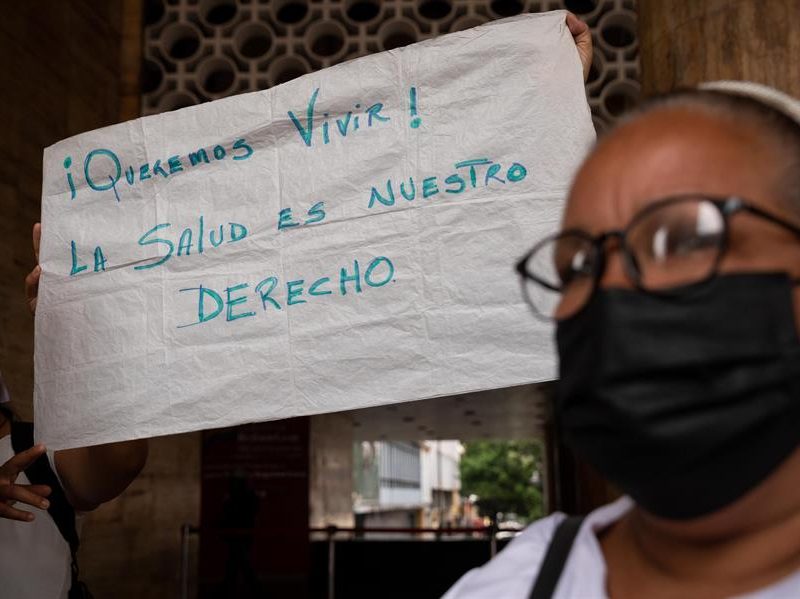 ¡QUEREMOS VIVIR!
LA SALUD ES NUESTRO
DERECHO.